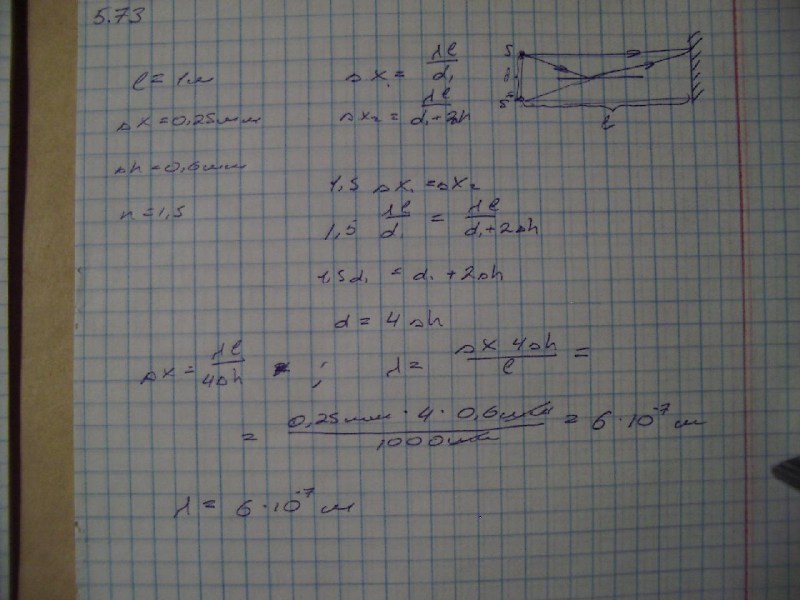 5.73
l = 1м
Δx = 0,25мм
Δh = 0,6мм
n = 1,5
Δx₁ = λl/d₁
Δx₂ = λl/(d₁+2Δh)
S
S'
l
1,5 Δx₁ = Δx₂
1,5 λl/d₁ = λl/(d₁+2Δh)
1,5d₁ = d₁ + 2Δh
d = 4Δh
Δx = λl/4Δh ; λ = Δx 4Δh/l =
= 0,25мм · 4 · 0,6мм/1000мм = 6·10⁻⁷ м
λ = 6·10⁻⁷ м